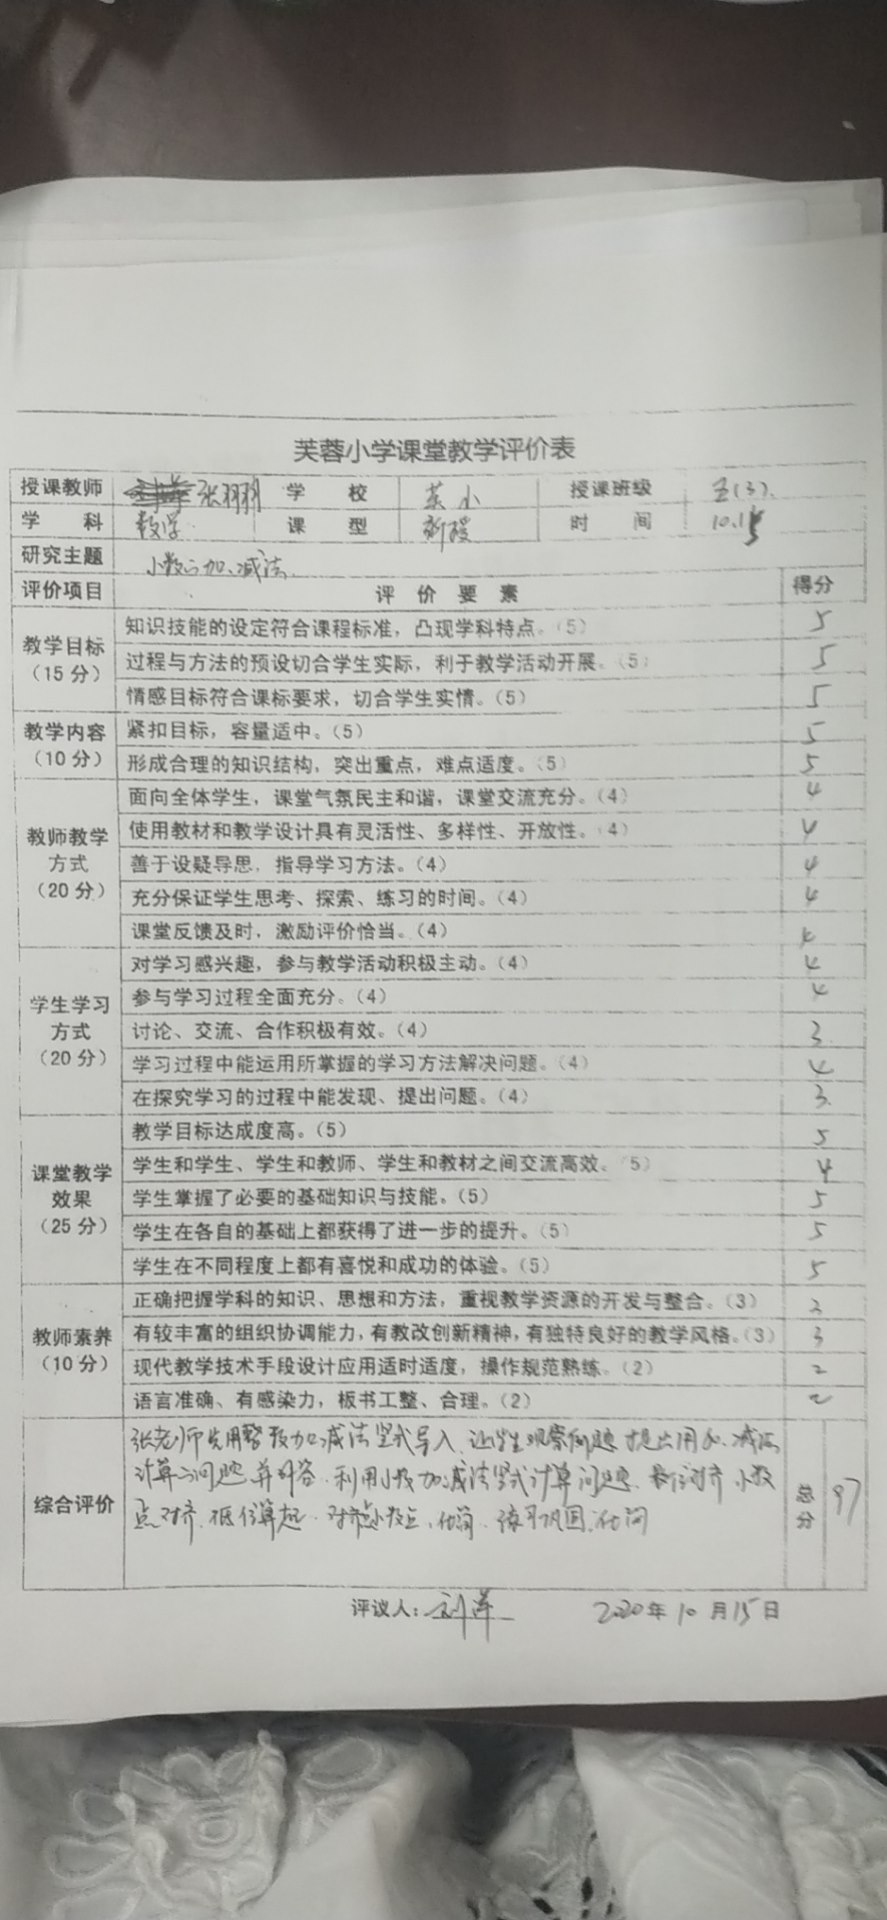 芙蓉小学课堂教学评价表
授课教师 张翔翔 学校 芙小 授课班级 五(3).
学科 数学 课型 新授 时间 10.15
研究主题 小数的加、减法
评价项目 评价要素 得分
教学目标（15分）
知识技能的设定符合课程标准，凸现学科特点。（5） 5
过程与方法的预设切合学生实际，利于教学活动开展。（5） 5
情感目标符合课标要求，切合学生实情。（5） 5
教学内容（10分）
紧扣目标，容量适中。（5） 5
形成合理的知识结构，突出重点，难点适度。（5） 5
教师教学方式（20分）
面向全体学生，课堂气氛民主和谐，课堂交流充分。（4） 4
使用教材和教学设计具有灵活性、多样性、开放性。（4） 4
善于设疑导思，指导学习方法。（4） 4
充分保证学生思考、探索、练习的时间。（4） 4
课堂反馈及时，激励评价恰当。（4） 4
学生学习方式（20分）
对学习感兴趣，参与教学活动积极主动。（4） 4
参与学习过程全面充分。（4） 4
讨论、交流、合作积极有效。（4） 3
学习过程中能运用所掌握的学习方法解决问题。（4） 4
在探究学习的过程中能发现、提出问题。（4） 3
课堂教学效果（25分）
教学目标达成度高。（5） 5
学生和学生、学生和教师、学生和教材之间交流高效。（5） 4
学生掌握了必要的基础知识与技能。（5） 5
学生在各自的基础上都获得了进一步的提升。（5） 5
学生在不同程度上都有喜悦和成功的体验。（5） 5
教师素养（10分）
正确把握学科的知识、思想和方法，重视教学资源的开发与整合。（3）
有较丰富的组织协调能力，有教改创新精神，有独特良好的教学风格。（3） 3
现代教学技术手段设计应用适时适度，操作规范熟练。（2） 2
语言准确、有感染力，板书工整、合理。（2） 2
综合评价
张老师先用整数加减法竖式导入、让学生观察问题 提出用加、减法
计算的问题 并解答. 利用小数加减法竖式计算问题、数位对齐 小数
点对齐、低位算起. 对齐小数点、化简. 练习巩固.化简
总分 97
评议人：刘萍 2020年10月15日